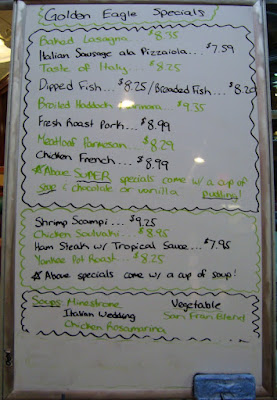 Golden Eagle Specials
Baked Lasagna... $8.35
Italian Sausage ala Pizzaiola... $7.59
Taste of Italy... $8.25
Dipped Fish... $8.25/Breaded Fish... $8.20
Broiled Haddock Marinara... $9.35
Fresh Roast Pork... $8.99
Meatloaf Parmesan... $8.29
Chicken French... $8.99
Above SUPER specials come w/ a cup of
soup & chocolate or vanilla pudding!
Shrimp Scampi... $9.25
Chicken Souvlaki... $8.95
Ham Steak w/ Tropical Sauce... $7.95
Yankee Pot Roast... $8.25
Above specials come w/ a cup of soup!
Soups: Minestrone Vegetable
Italian Wedding San Fran Blend
Chicken Rosamarina